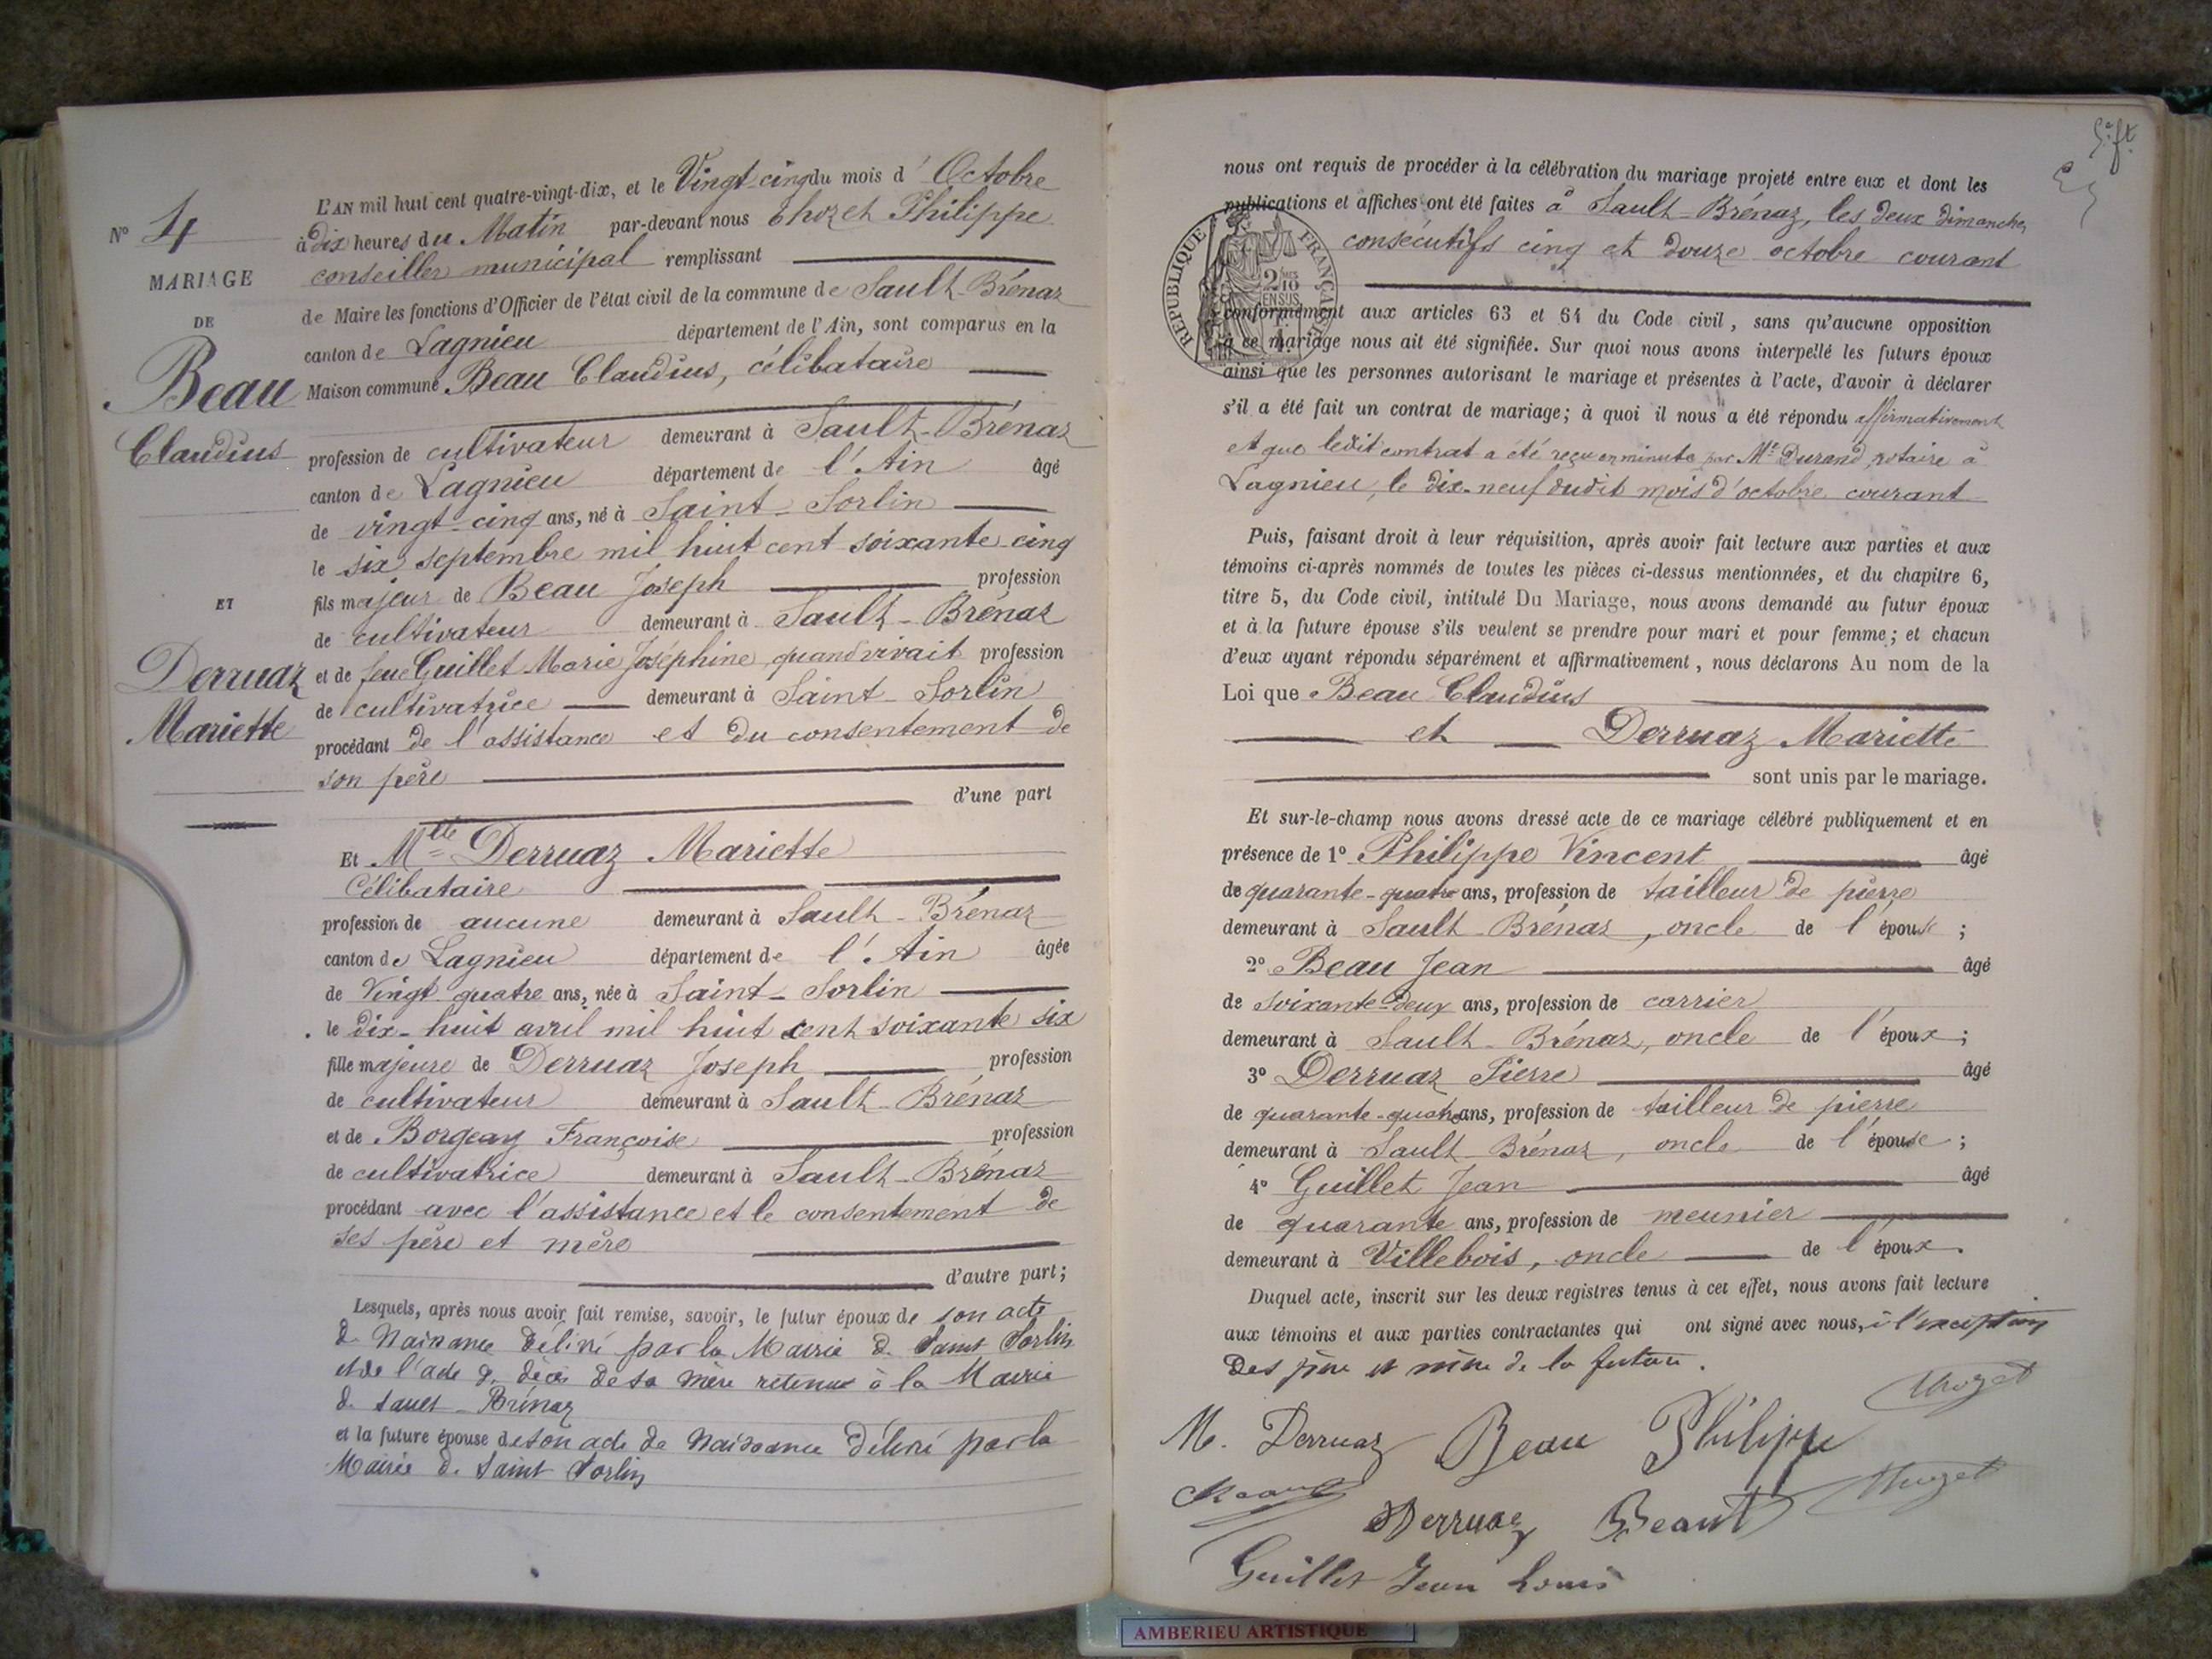 L'AN mil huit cent quatre-vingt-dix, et le Vingt-cinq du mois d'Octobre
N° 4
à dix heures du Matin par-devant nous Thozet Philippe
conseiller municipal remplissant
MARIAGE
de Maire les fonctions d'Officier de l'état civil de la commune de Sault-Brénaz
DE
canton de Lagnieu département de l'Ain, sont comparus en la
Beau
Maison commune Beau Claudius, célibataire
Claudius
profession de cultivateur demeurant à Sault-Brénaz
canton de Lagnieu département de l'Ain âgé
de vingt-cinq ans, né à Saint-Sorlin
le six septembre mil huit cent soixante-cinq
ET
fils majeur de Beau Joseph profession
de cultivateur demeurant à Sault-Brénaz
Derruaz
et de feue Guillet Marie Joséphine, quand vivait profession
de cultivatrice demeurant à Saint-Sorlin
Mariette
procédant de l'assistance et du consentement de
son père
d'une part
Et Mlle Derruaz Mariette
Célibataire
profession de aucune demeurant à Sault-Brénaz
canton de Lagnieu département de l'Ain âgée
de Vingt-quatre ans, née à Saint-Sorlin
le dix-huit avril mil huit cent soixante six
fille majeure de Derruaz Joseph profession
de cultivateur demeurant à Sault-Brénaz
et de Borgeay Françoise profession
de cultivatrice demeurant à Sault-Brénaz
procédant avec l'assistance et le consentement de
ses père et mère
d'autre part;
Lesquels, après nous avoir fait remise, savoir, le futur époux de son acte
de Naissance délivré par la Mairie de Saint Sorlin
et de l'acte de décès de sa mère retenue à la Mairie
de Sault-Brénaz
et la future épouse de son acte de Naissance délivré par la
Mairie de Saint Sorlin
nous ont requis de procéder à la célébration du mariage projeté entre eux et dont les
publications et affiches ont été faites à Sault-Brénaz, les deux dimanches
consécutifs cinq et douze octobre courant
RÉPUBLIQUE FRANÇAISE
2 10 EN SUS
conformément aux articles 63 et 64 du Code civil, sans qu'aucune opposition
à ce mariage nous ait été signifiée. Sur quoi nous avons interpellé les futurs époux
ainsi que les personnes autorisant le mariage et présentes à l'acte, d'avoir à déclarer
s'il a été fait un contrat de mariage; à quoi il nous a été répondu affirmativement
et que ledit contrat a été reçu en minute par Me Durand notaire à
Lagnieu, le dix-neuf dudit mois d'octobre courant
Puis, faisant droit à leur réquisition, après avoir fait lecture aux parties et aux
témoins ci-après nommés de toutes les pièces ci-dessus mentionnées, et du chapitre 6,
titre 5, du Code civil, intitulé Du Mariage, nous avons demandé au futur époux
et à la future épouse s'ils veulent se prendre pour mari et pour femme; et chacun
d'eux ayant répondu séparément et affirmativement, nous déclarons Au nom de la
Loi que Beau Claudius
et Derruaz Mariette
sont unis par le mariage.
Et sur-le-champ nous avons dressé acte de ce mariage célébré publiquement et en
présence de 1° Philippe Vincent âgé
de quarante-quatre ans, profession de tailleur de pierre
demeurant à Sault-Brénaz, oncle de l'épouse;
2° Beau Jean âgé
de soixante-deux ans, profession de carrier
demeurant à Sault-Brénaz, oncle de l'époux;
3° Derruaz Pierre âgé
de quarante-quatre ans, profession de tailleur de pierre
demeurant à Sault-Brénaz, oncle de l'épouse;
4° Guillet Jean âgé
de quarante ans, profession de meunier
demeurant à Villebois, oncle de l'époux.
Duquel acte, inscrit sur les deux registres tenus à cet effet, nous avons fait lecture
aux témoins et aux parties contractantes qui ont signé avec nous, à l'exception
Des père et mère de la future.
Thozet
M. Derruaz Beau Philippe
Derruaz Beau Thozet
Guillet Jean Louis
AMBERIEU ARTISTIQUE